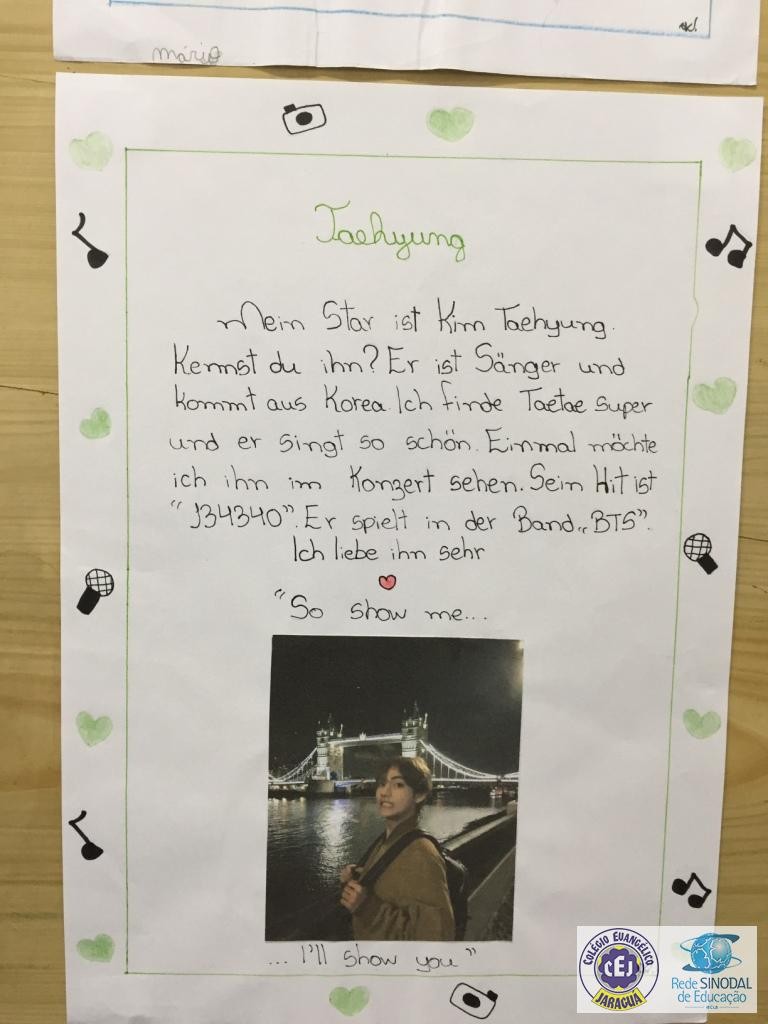 mário
Taehyung
Mein Star ist Kim Taehyung.
Kennst du ihn? Er ist Sänger und
kommt aus Korea. Ich finde Taetae super
und er singt so schön. Einmal möchte
ich ihn im Konzert sehen. Sein Hit ist
"134340". Er spielt in der Band „BTS".
Ich liebe ihn sehr
"So show me...
... I'll show you"
COLÉGIO EVANGÉLICO
CEJ
JARAGUÁ
Rede SINODAL
de Educação